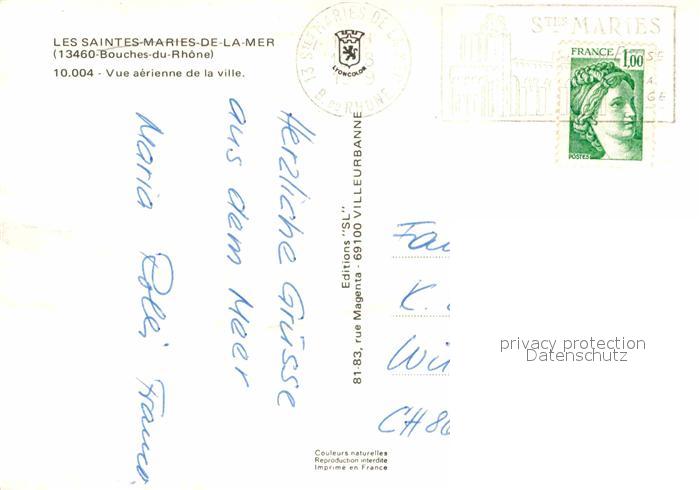 LES SAINTES-MARIES-DE-LA-MER
(13460-Bouches-du-Rhône)
10.004 - Vue aérienne de la ville.
LYONCOLOR
STES MARIES
FRANCE
1,00
POSTES
Herzliche Grüsse
aus dem Meer
Maria
Editions "SL"
81-83, rue Magenta - 69100 VILLEURBANNE
K.
CH 86
privacy protection
Datenschutz
Couleurs naturelles
Reproduction interdite
Imprimé en France